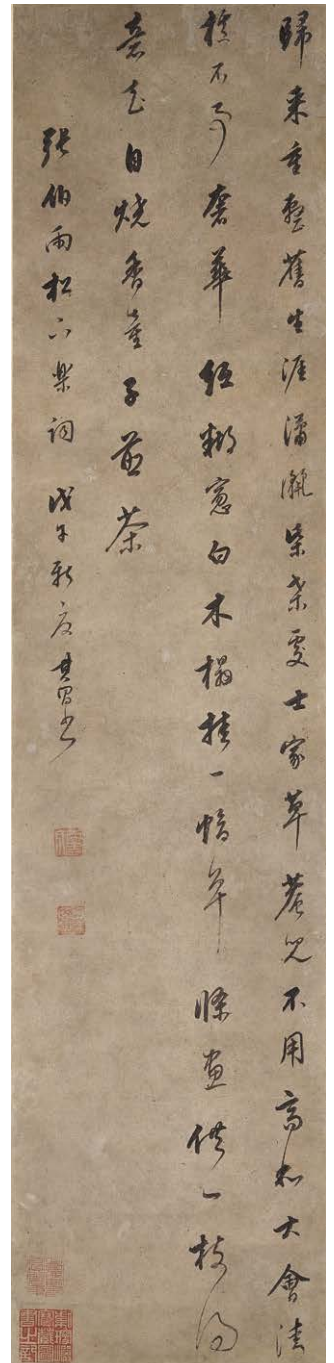 歸來重整舊生涯瀟灑柴桑處士家草菴兒不用高和大會清
標不事奢華紙糊窓白木榻挂一幅單條畫供一枝得
意花自燒香童子煎茶
張伯雨松下樂詞 戊子新夏 其昌書